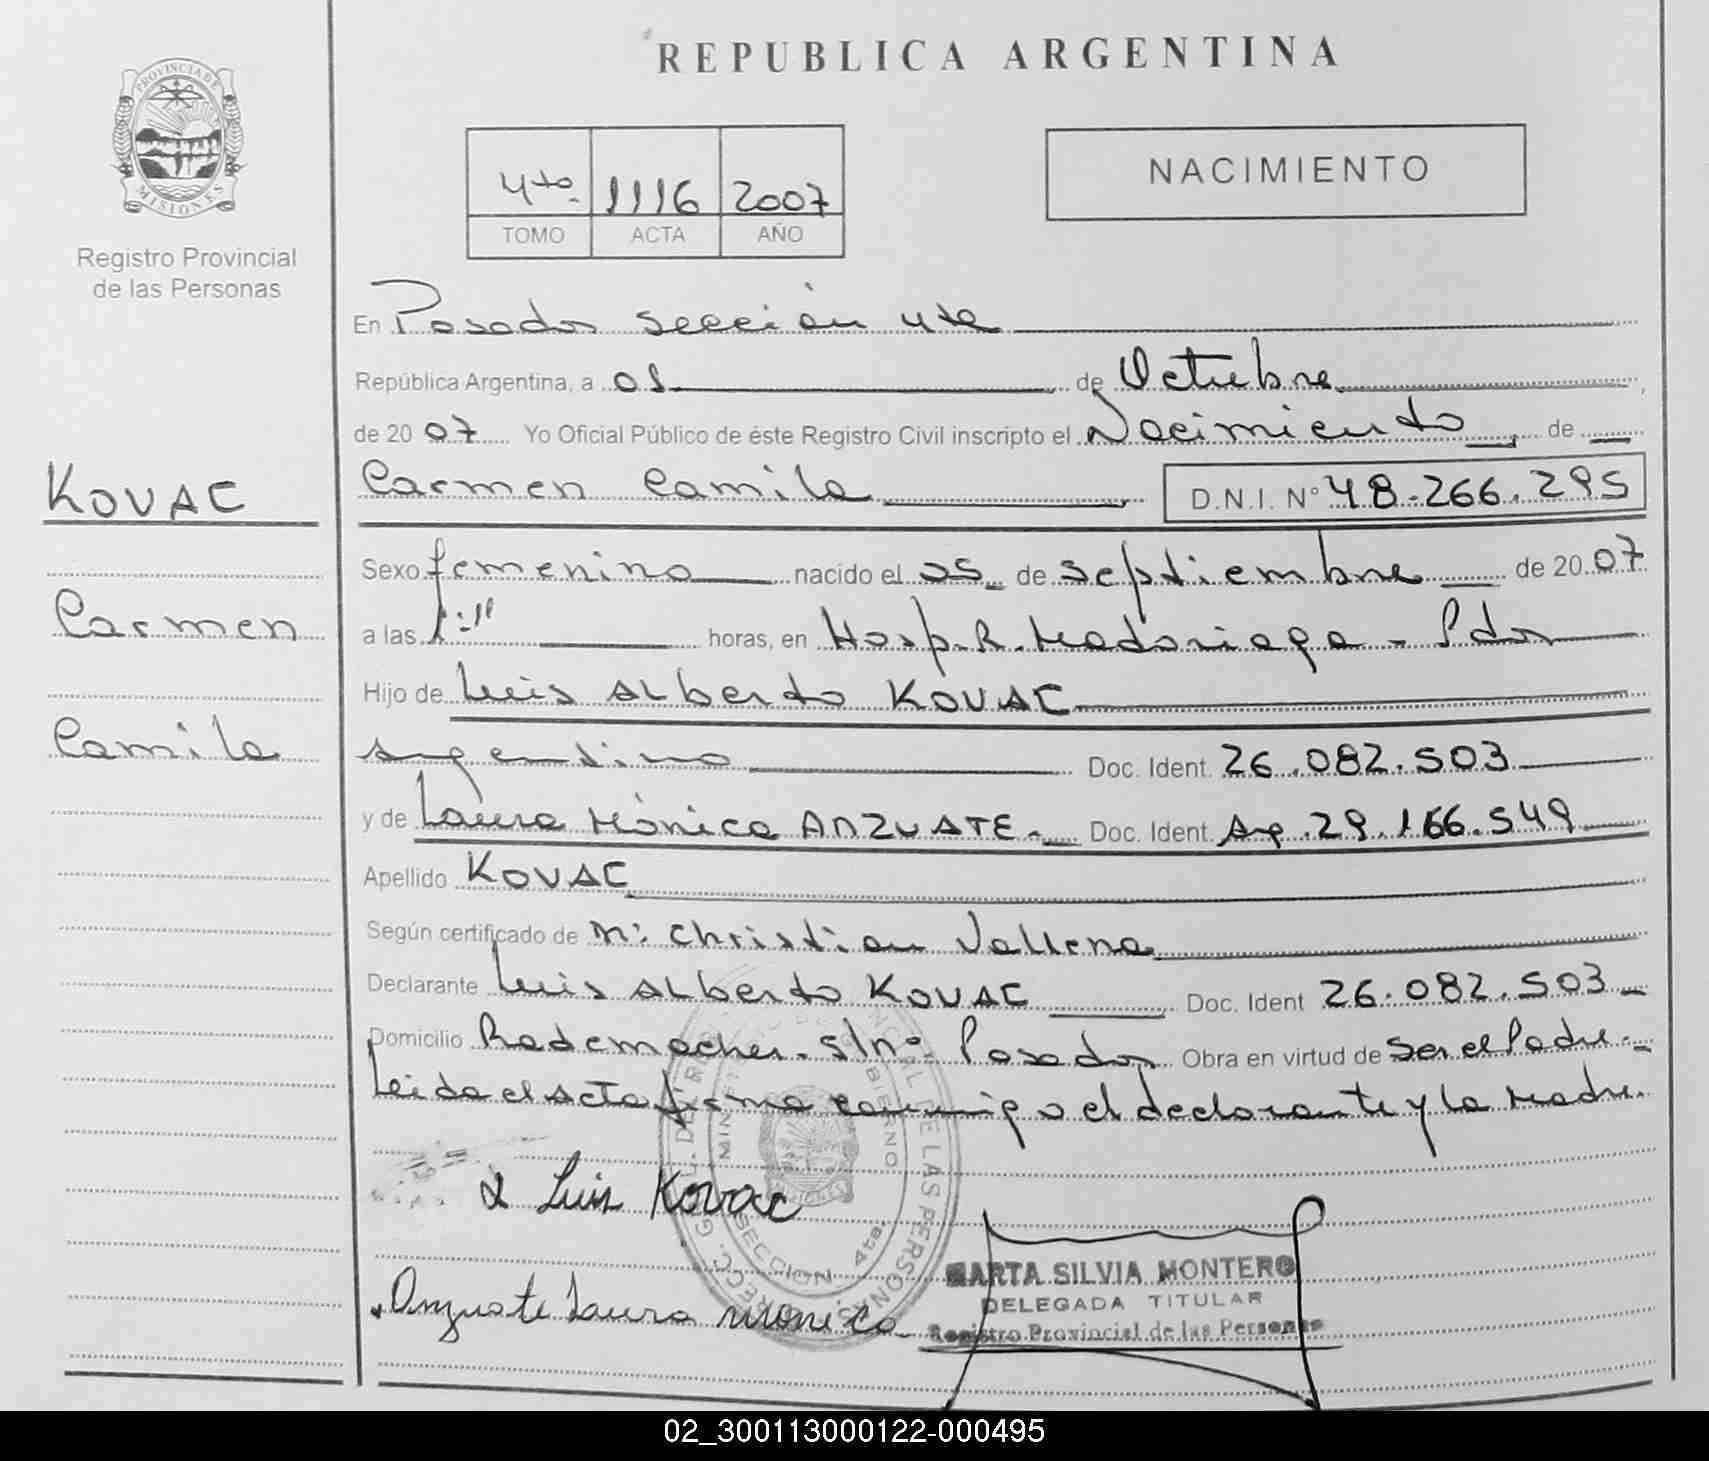 REPUBLICA ARGENTINA
PROVINCIA DE
MISIONES
Registro Provincial
de las Personas
4to. 1116 2007
TOMO ACTA AÑO
NACIMIENTO
En Posadas sección 4ta
República Argentina, a 01 de Octubre
de 2007 Yo Oficial Público de éste Registro Civil inscripto el Nacimiento, de
KOVAC
Carmen Camila D.N.I. N° 48.266.295
Sexo femenino nacido el 05 de septiembre de 2007
Carmen
a las horas, en Hosp. R. Madariaga - Pdas
Hijo de Luis ALberto KOVAC
Camila
argentino Doc. Ident. 26.082.503
y de Laura Mónica ANZUATE.- Doc. Ident. Arg. 29.166.549
Apellido KOVAC
Según certificado de Christian Vallena
Declarante Luis ALberto KOVAC Doc. Ident 26.082.503
Domicilio Rademacher. s/nº. Posadas Obra en virtud de Ser el Padre.-
Leida el acta firma conmigo el declarante y la Madre.
Luis Kovac
MARTA SILVIA MONTERO
DELEGADA TITULAR
Registro Provincial de las Personas
Anzuate Laura Monica
SECCION 4ta.
02_300113000122-000495